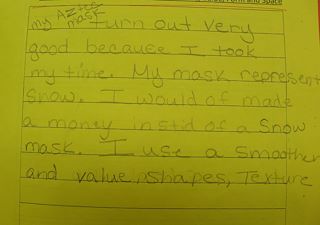 Form and Space
my Aztec mask turn out very
good because I took
my time. My mask represent
snow. I would of made
a money instid of a Snow
mask. I use a smoother
and value shapes, Texture